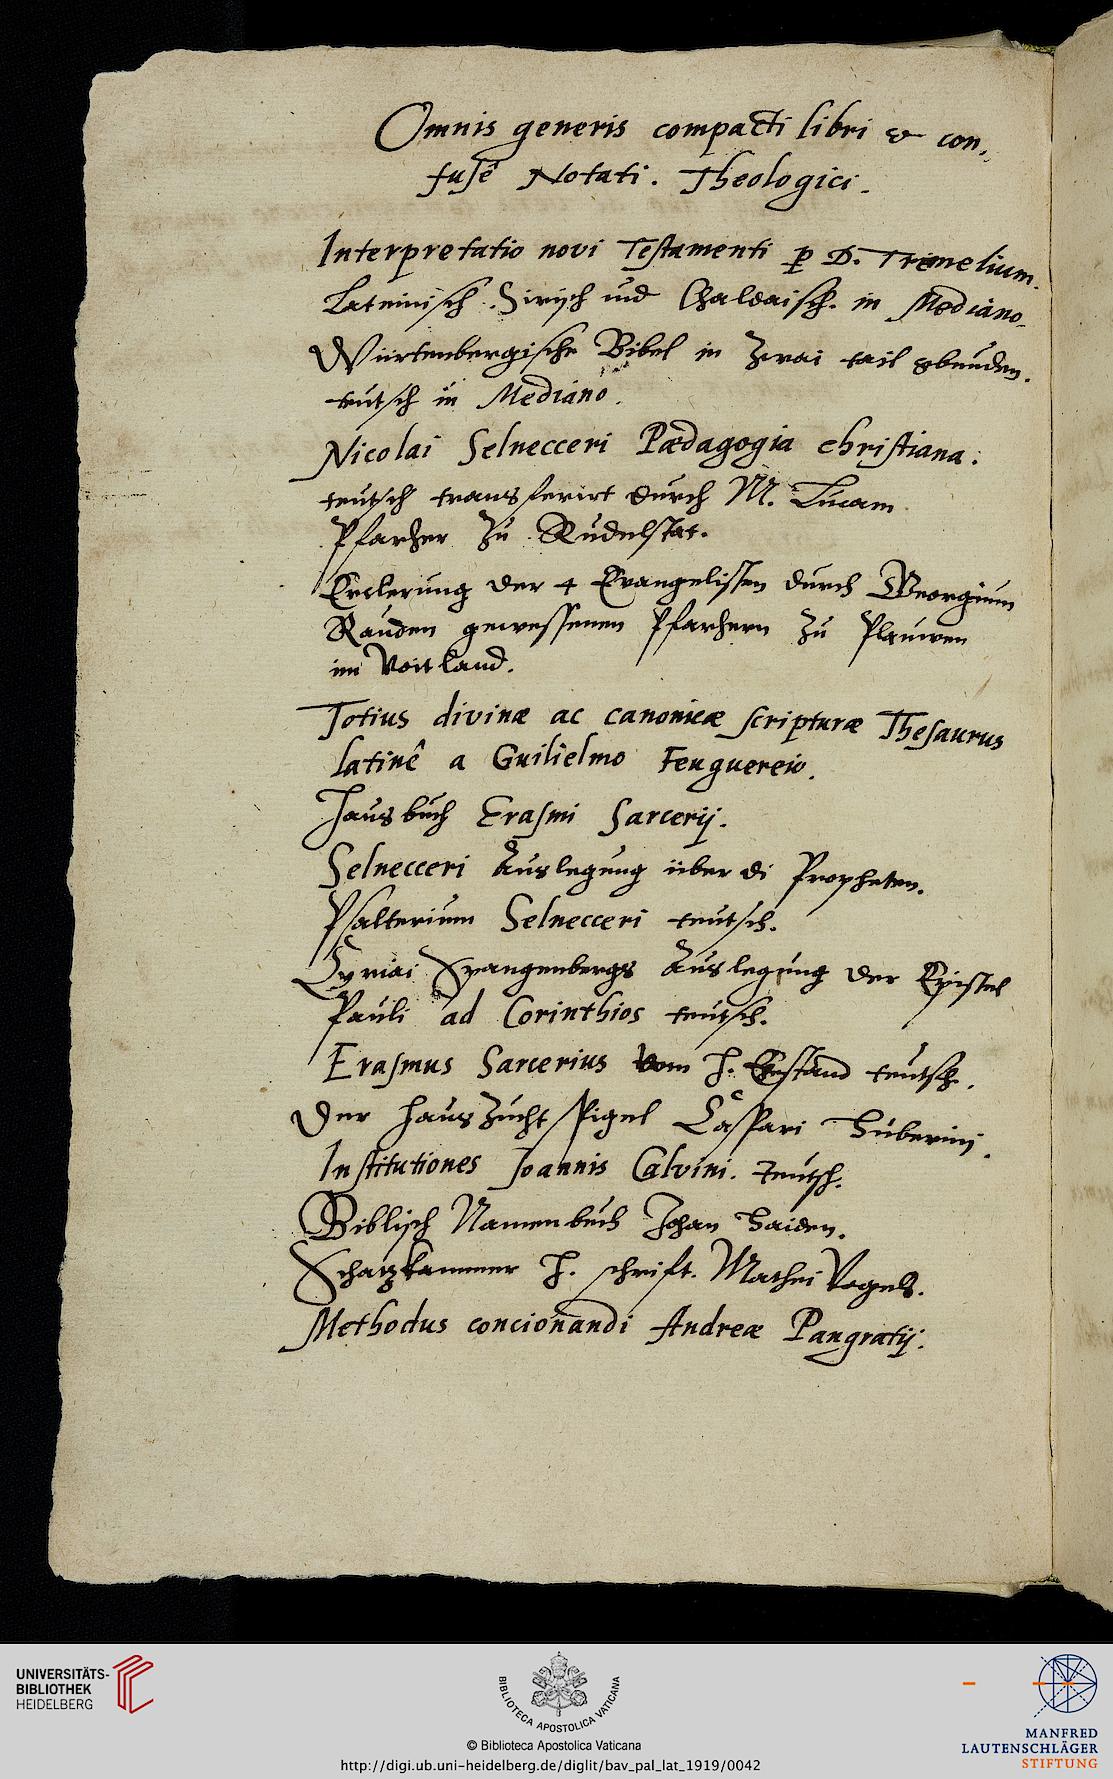 Omnis generis compacti libri & con„
fusê Notati. Theologici.
Interpretatio novi Testamenti p D. Tremelium.
Lateinisch Sirisch und Chaldaisch. in Mediano.
Würtenbergische Bibel in Zwai tail gbunden.
teutsch in Mediano.
Nicolai Selnecceri Pædagogia christiana.
teutsch transferirt durch M. Lucam
Pfarher Zu Rudelstat.
Erclerung der 4 Evangelisten durch Georgium
Rauden gewessenen Pfarhern Zu Plauwen
im Voitland.
Totius divinæ ac canonicæ scripturæ Thesaurus
latinê a Guilielmo Feuguereio.
Hausbuch Erasmi Sarcerij.
Selnecceri Auslegung über di Propheten.
Psalterium Selnecceri teutsch.
Cyriaci Spangenbergs Auslegung der Epistel
Pauli ad Corinthios teutsch.
Erasmus Sarcerius vom H. Ehestand teutsch.
Der HausZucht Spigel Caspari Huberini.
Institutiones Joannis Calvini. teutsch.
Biblisch Namenbuch Johan Haiden.
Schatzkammer H. schrift. Mathei Vogels.
Methodus concionandi Andreæ Pangratij.
UNIVERSITÄTS-
BIBLIOTHEK
HEIDELBERG
BIBLIOTECA APOSTOLICA VATICANA
© Biblioteca Apostolica Vaticana
http://digi.ub.uni-heidelberg.de/diglit/bav_pal_lat_1919/0042
MANFRED
LAUTENSCHLÄGER
STIFTUNG